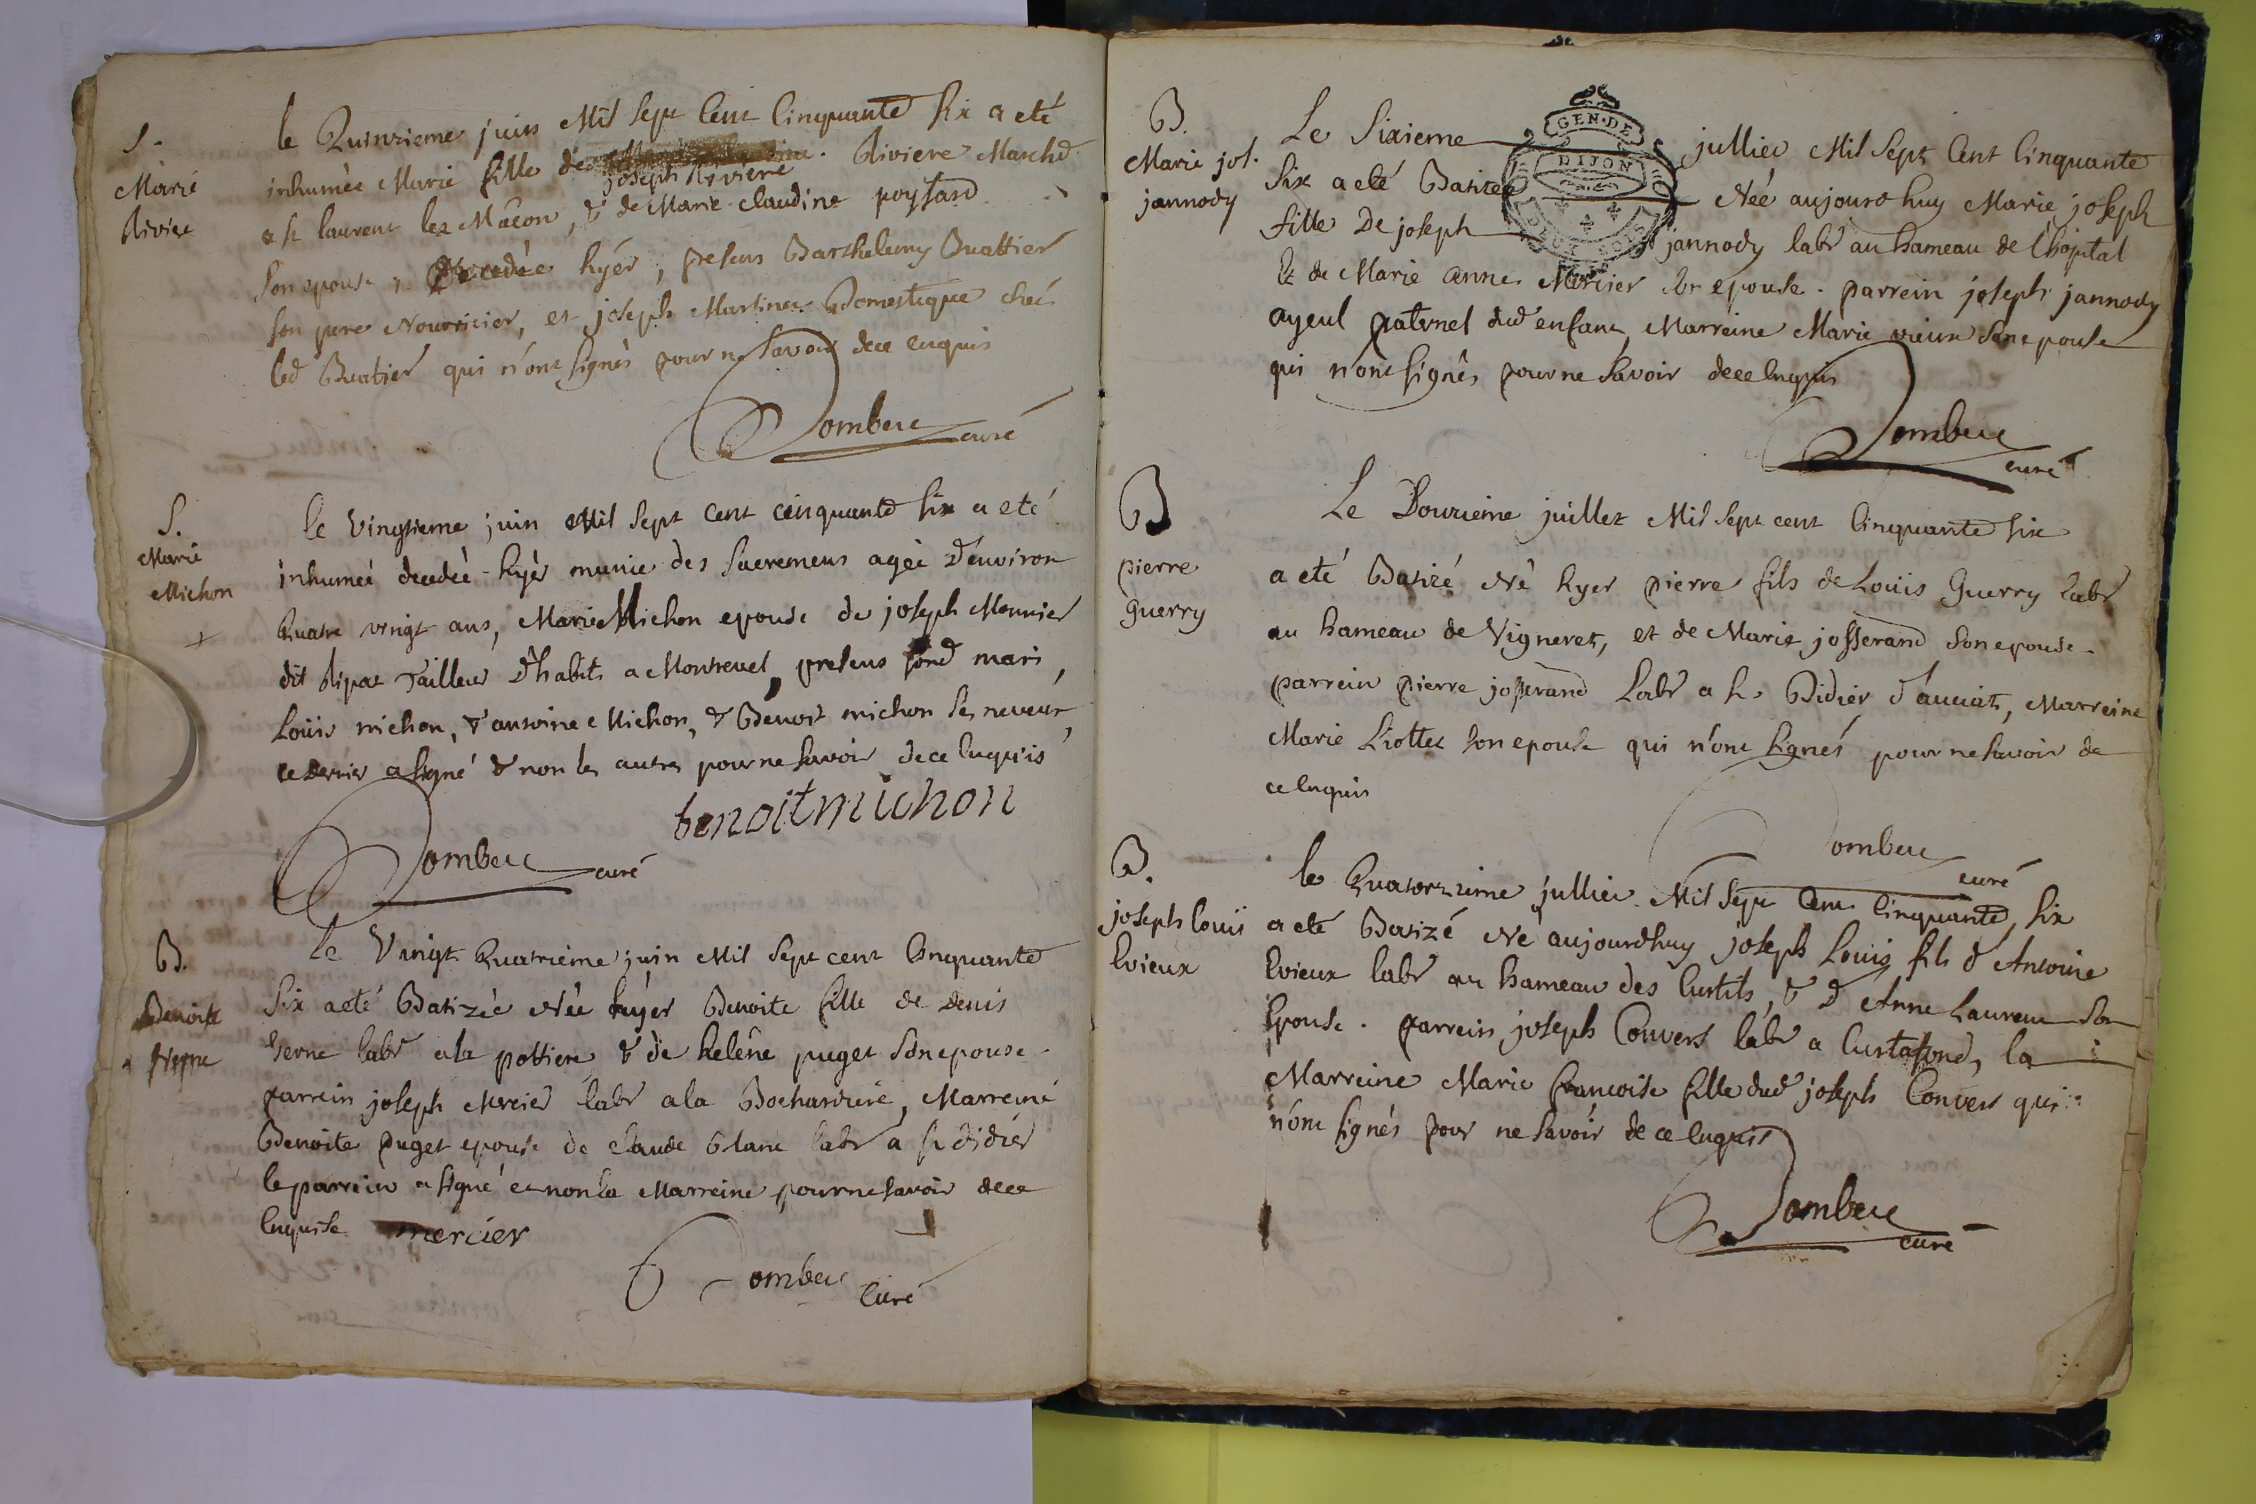 S.
Marie
Riviere
le Quinzieme juin Mil Sept Cent Cinquante Six a eté
inhumèe Marie fille de Riviere Marchd
joseph Riviere
a st laurent lez Mâcon, & de Marie Claudine poysard
Son epouse, Decedèe hyér, presens Barthelemy Buattier
son pere Nourricier, et joseph Martinet Domestique chés
led Buatier qui n'ont signès pour ne savoir de ce enquis
Dombeu curé
S.
Marie
Michon
le vingtieme juin Mil Sept Cent cinquante Six a eté
inhumeé decedeé hyèr munie des Sacremens agèe d'environ
Quatre vingt ans, Marie Michon epouse de joseph Monnier
dit Ripat Tailleur d'habits a Montrevel, presens sond mari,
Loüis michon, & antoine Michon, & Benoit michon ses neveux,
ce dernier a signé & non les autres pour ne savoir de ce enquis
benoit michon
Dombeu curé
B.
Benoite
Verne
le Vingt Quatrieme juin Mil Sept cent Cinquante
Six a eté Batizèe Née hyér Benoite fille de Denis
Verne labr a la pottiere & de heléne puget Son epouse.
parrein joseph Mercier labr a la Bochardiere, Marreine
Benoite puget epouse de Claude blanc labr a st didier
le parrein a signé et non la Marreine pour ne savoir de ce
enquise mercier
Dombeu Curé
B.
Marie jos.
jannody
Le Sixieme jullier Mil Sept Cent Cinquante
GEN·DE
DIJON
Six a eté Batizee Néé aujourdhuy Marie joseph
fille De joseph jannody labr au hameau de l'hôpital
& de Marie anne Mercier son epouse. parrein joseph jannody
ayeul paternel dud enfant, Marreine Marie vieux son epouse
qui n'ont signès pour ne savoir de ce enquis
Dombeu
curé
B
pierre
guerry
Le Douzieme juillet Mil Sept cent Cinquante six
a eté Batizé Né hyer pierre fils de Loüis Guerry labr
au hameau de Vigneret, et de Marie josserand Son epouse.
parrein pierre josserand Labr a st Didier d'aussiat, Marreine
Marie Liottet son epouse qui n'ont signés pour ne savoir de
ce enquis
Dombeu
curé
B.
joseph louis
Evieux
le Quatorzieme jullier Mil Sept Cent Cinquante Six
a eté Batizé Né aujourdhuy joseph Louis fils d'Antoine
Evieux labr au hameau des Curtils, & d'Anne Laurent Son
Epouse. parrein joseph Convers labr a Curtafond, la
Marreine Marie francoise fille dud joseph Convers qui
n'ont signés pour ne savoir de ce enquis
Dombeu
curé